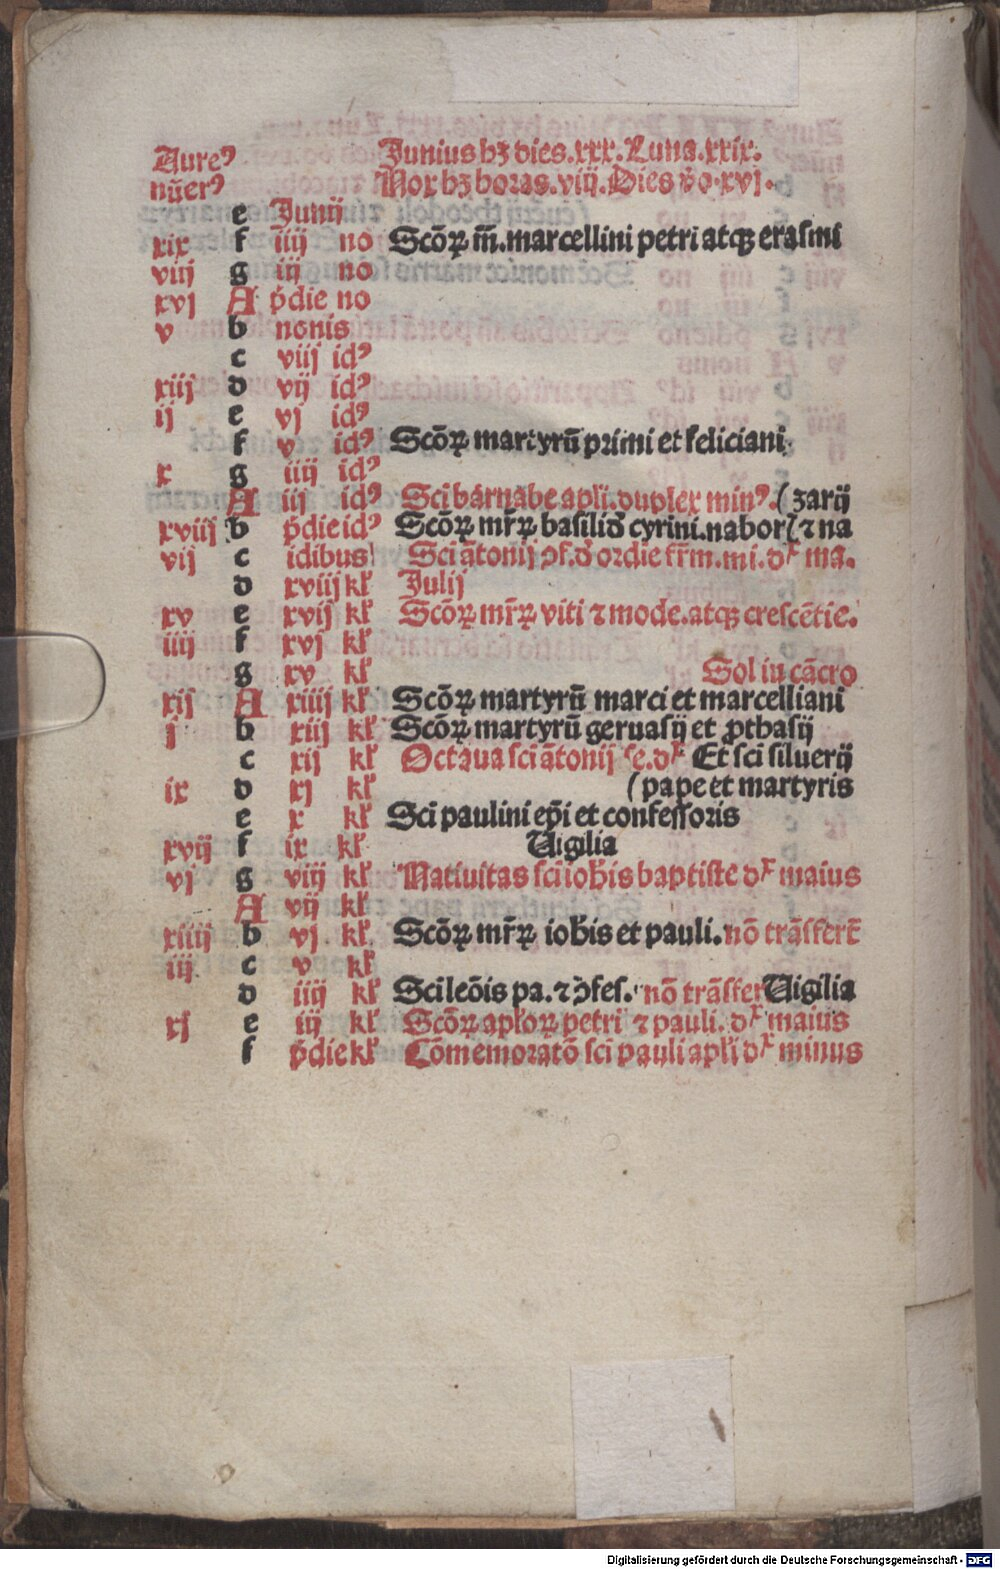 Aureꝰ Junius hꝫ dies.xxx.Luna.xxix.
nūerꝰ Nox hꝫ horas.viij.Dies ṽo.xvj.
e Junij
xix f iiij no Scōꝝ m̄.marcellini petri atqꝫ erasmi
viij g iij no
xvj A p̄die no
v b nonis
c viij idꝰ
xiij d vij idꝰ
ij e vj idꝰ
f v idꝰ Scōꝝ martyrū primi et feliciani
x g iiij idꝰ
A iij idꝰ Sci barnabe apli.duplex minꝰ. (zarij
xviij b p̄die idꝰ Scōꝝ mr̄ꝝ basilid̄ cyrini.nabor⁊ ꞇ na
vij c idibus Sci ātonij ꝯf.d̄ ordie fr̄m.mi.dr̄ ma.
d xviij kl̄ Julij
xv e xvij kl̄ Scōꝝ mr̄ꝝ viti ꞇ mode.atqꝫ crescētie.
iiij f xvj kl̄
g xv kl̄ Sol in cācro
xij A xiiij kl̄ Scōꝝ martyrū marci et marcelliani
j b xiij kl̄ Scōꝝ martyrū geruasij et ꝓthasij
c xij kl̄ Octaua sci ātonij se.dr̄ Et sci siluerij
ix d xj kl̄ (pape et martyris
e x kl̄ Sci paulini ep̄i et confessoris
xvij f ix kl̄ Uigilia
vj g viij kl̄ Natiuitas sci ioh̄is baptiste dr̄ maius
A vij kl̄
xiiij b vj kl̄ Scōꝝ mr̄ꝝ ioh̄is et pauli.nō trāsfert̄
iij c v kl̄
d iiij kl̄ Sci leōis pa.ꞇ ꝯfes. nō trāsfer Uigilia
xj e iij kl̄ Scōꝝ apl̄oꝝ petri ꞇ pauli.dr̄ maius
f p̄die kl̄ Cōmemoratō sci pauli apl̄i dr̄ minus
Digitalisierung gefördert durch die Deutsche Forschungsgemeinschaft - DFG